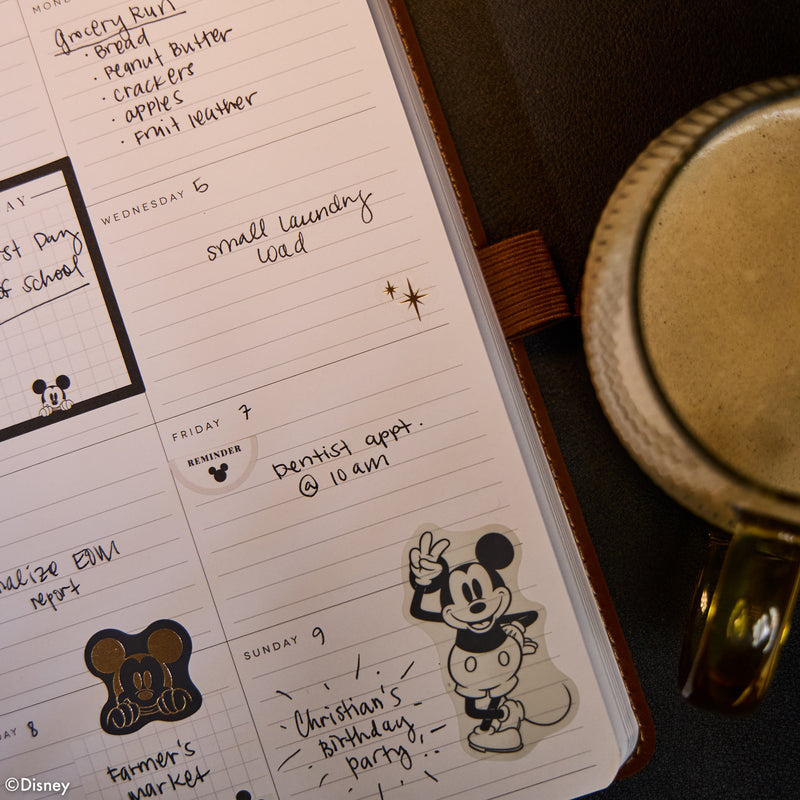 MON
Grocery Run
• Bread
• Peanut Butter
• crackers
• apples
• Fruit leather
WEDNESDAY 5
small laundry
load
AY
rst Day
of school
FRIDAY 7
REMINDER
Dentist appt.
@ 10 am
nalize EOM
report
SUNDAY 9
Christian's
Birthday
party
DAY 8
Farmer's
market
©Disney